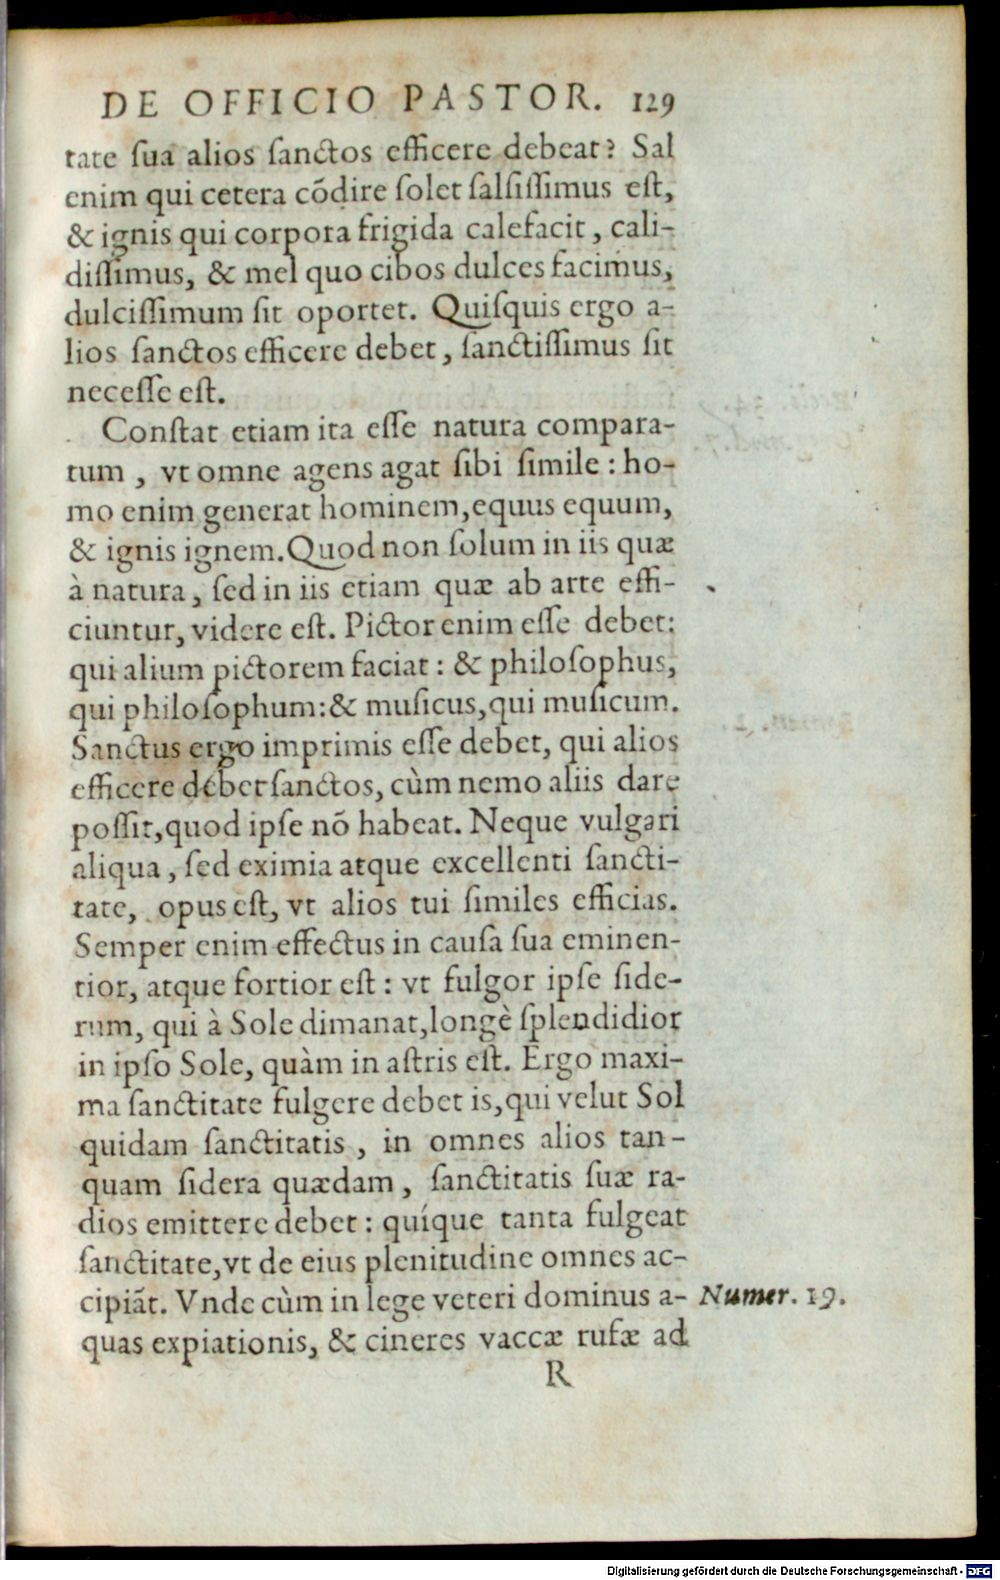 DE OFFICIO PASTOR. 129
tate ſua alios ſanctos efficere debeat? Sal
enim qui cetera cõdire ſolet ſalſiſſimus eſt,
& ignis qui corpora frigida calefacit, cali-
diſſimus, & mel quo cibos dulces facimus,
dulciſſimum ſit oportet. Quiſquis ergo a-
lios ſanctos efficere debet, ſanctiſſimus ſit
neceſſe eſt.
Conſtat etiam ita eſſe natura compara-
tum, vt omne agens agat ſibi ſimile: ho-
mo enim generat hominem, equus equum,
& ignis ignem. Quod non ſolum in iis quæ
à natura, ſed in iis etiam quæ ab arte effi-
ciuntur, videre eſt. Pictor enim eſſe debet:
qui alium pictorem faciat: & philoſophus,
qui philoſophum: & muſicus, qui muſicum.
Sanctus ergo imprimis eſſe debet, qui alios
efficere debet ſanctos, cùm nemo aliis dare
poſſit, quod ipſe nõ habeat. Neque vulgari
aliqua, ſed eximia atque excellenti ſancti-
tate, opus eſt, vt alios tui ſimiles efficias.
Semper enim effectus in cauſa ſua eminen-
tior, atque fortior eſt: vt fulgor ipſe ſide-
rum, qui à Sole dimanat, longè ſplendidior
in ipſo Sole, quàm in aſtris eſt. Ergo maxi-
ma ſanctitate fulgere debet is, qui velut Sol
quidam ſanctitatis, in omnes alios tan-
quam ſidera quædam, ſanctitatis ſuæ ra-
dios emittere debet: quíque tanta fulgeat
ſanctitate, vt de eius plenitudine omnes ac-
cipiãt. Vnde cùm in lege veteri dominus a- Numer. 19.
quas expiationis, & cineres vaccæ rufæ ad
R
Digitalisierung gefördert durch die Deutsche Forschungsgemeinschaft - DFG